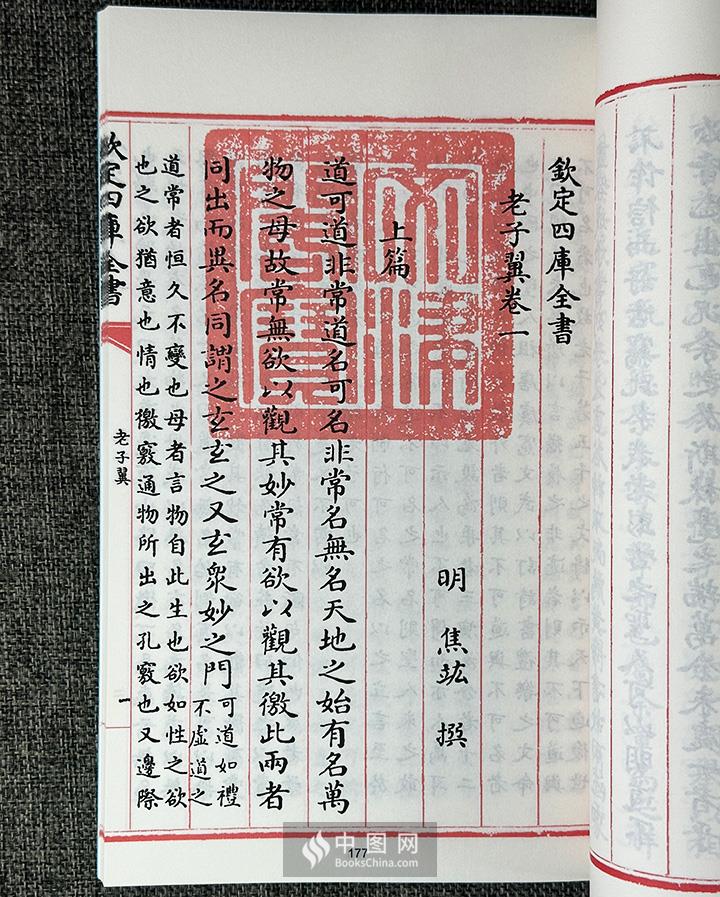 欽定四庫全書
老子翼卷一
明 焦竑 撰
上篇
道可道非常道名可名非常名無名天地之始有名萬
物之母故常無欲以觀其妙常有欲以觀其徼此兩者
同出而異名同謂之玄玄之又玄衆妙之門
可道如禮
不虛道之
道常者恒久不變也母者言物自此生也欲如性之欲
也之欲猶意也情也徼竅通物所出之孔竅也又邊際
欽定四庫全書
老子翼
一
文淵閣寶
177
中图网
BooksChina.com